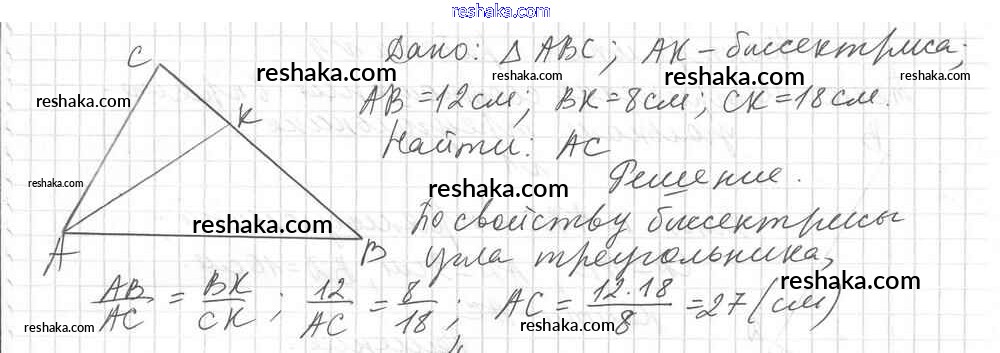 reshaka.com
Дано: △ ABC; AK – биссектриса;
reshaka.com
reshaka.com
reshaka.com
AB = 12 см; BK = 8 см; CK = 18 см.
reshaka.com
Найти: AC
C
K
A
B
reshaka.com
Решение.
reshaka.com
reshaka.com
По свойству биссектрисы
угла треугольника,
reshaka.com
AB/AC = BK/CK; 12/AC = 8/18; AC = 12·18/8 = 27 (см)
reshaka.com
reshaka.com